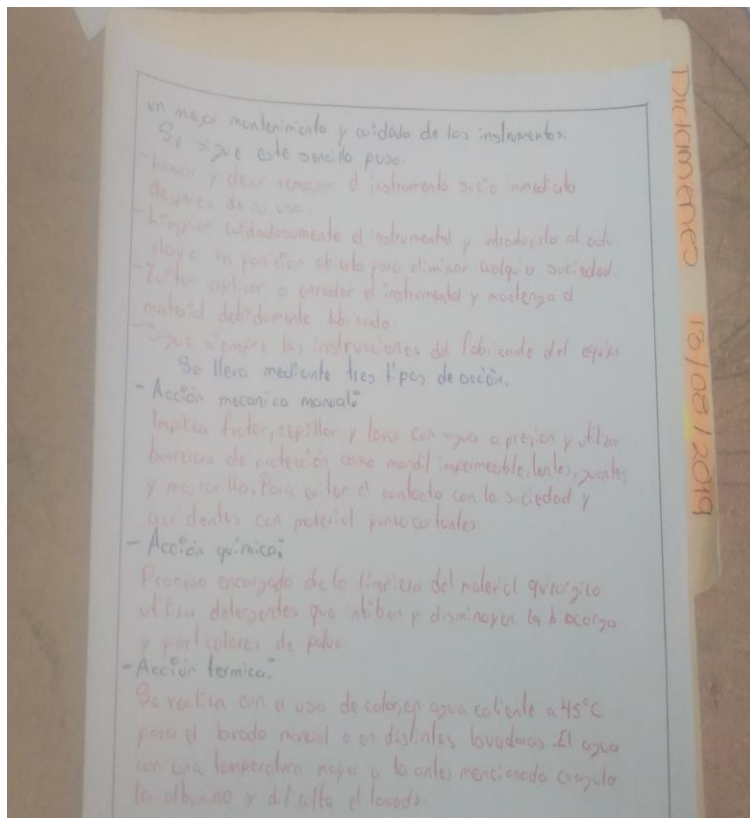 un mejor mantenimiento y cuidado de los instrumentos.
Se sigue este sencillo paso.
- Lavar y dejar remojar el instrumento sucio inmediato
despues de su uso.
- Limpiar cuidadosamente el instrumental y introducirlo al auto-
clave en posición abierta para eliminar cualquier suciedad.
- Evitar apilcar o enredar el instrumental y mantenga el
material debidamente lubricado.
- Sigue siempre las instrucciones del fabricante del equipo
Se lleva mediante tres tipos de acción.
- Acción mecanica manual:
Implica frotar, cepillar y lavar con agua a presion y utilizar
barreras de protección como mandil impermeable, lentes, guantes
y mascarilla. Para evitar el contacto con la suciedad y
accidentes con material punsocortantes
- Acción química:
Proceso encargado de la limpieza del material quirurgico
utiliza detergentes que inhiben y disminuyen la biocarga
y particulares de polvo
- Acción termica:
Se realiza con el uso de calor, en agua caliente a 45°C
para el lavado manual o en distintas lavadoras. El agua
con una temperatura mayor a lo antes mencionada coagula
la albumino y dificulta el lavado.
Dictamenes 13/08/2019